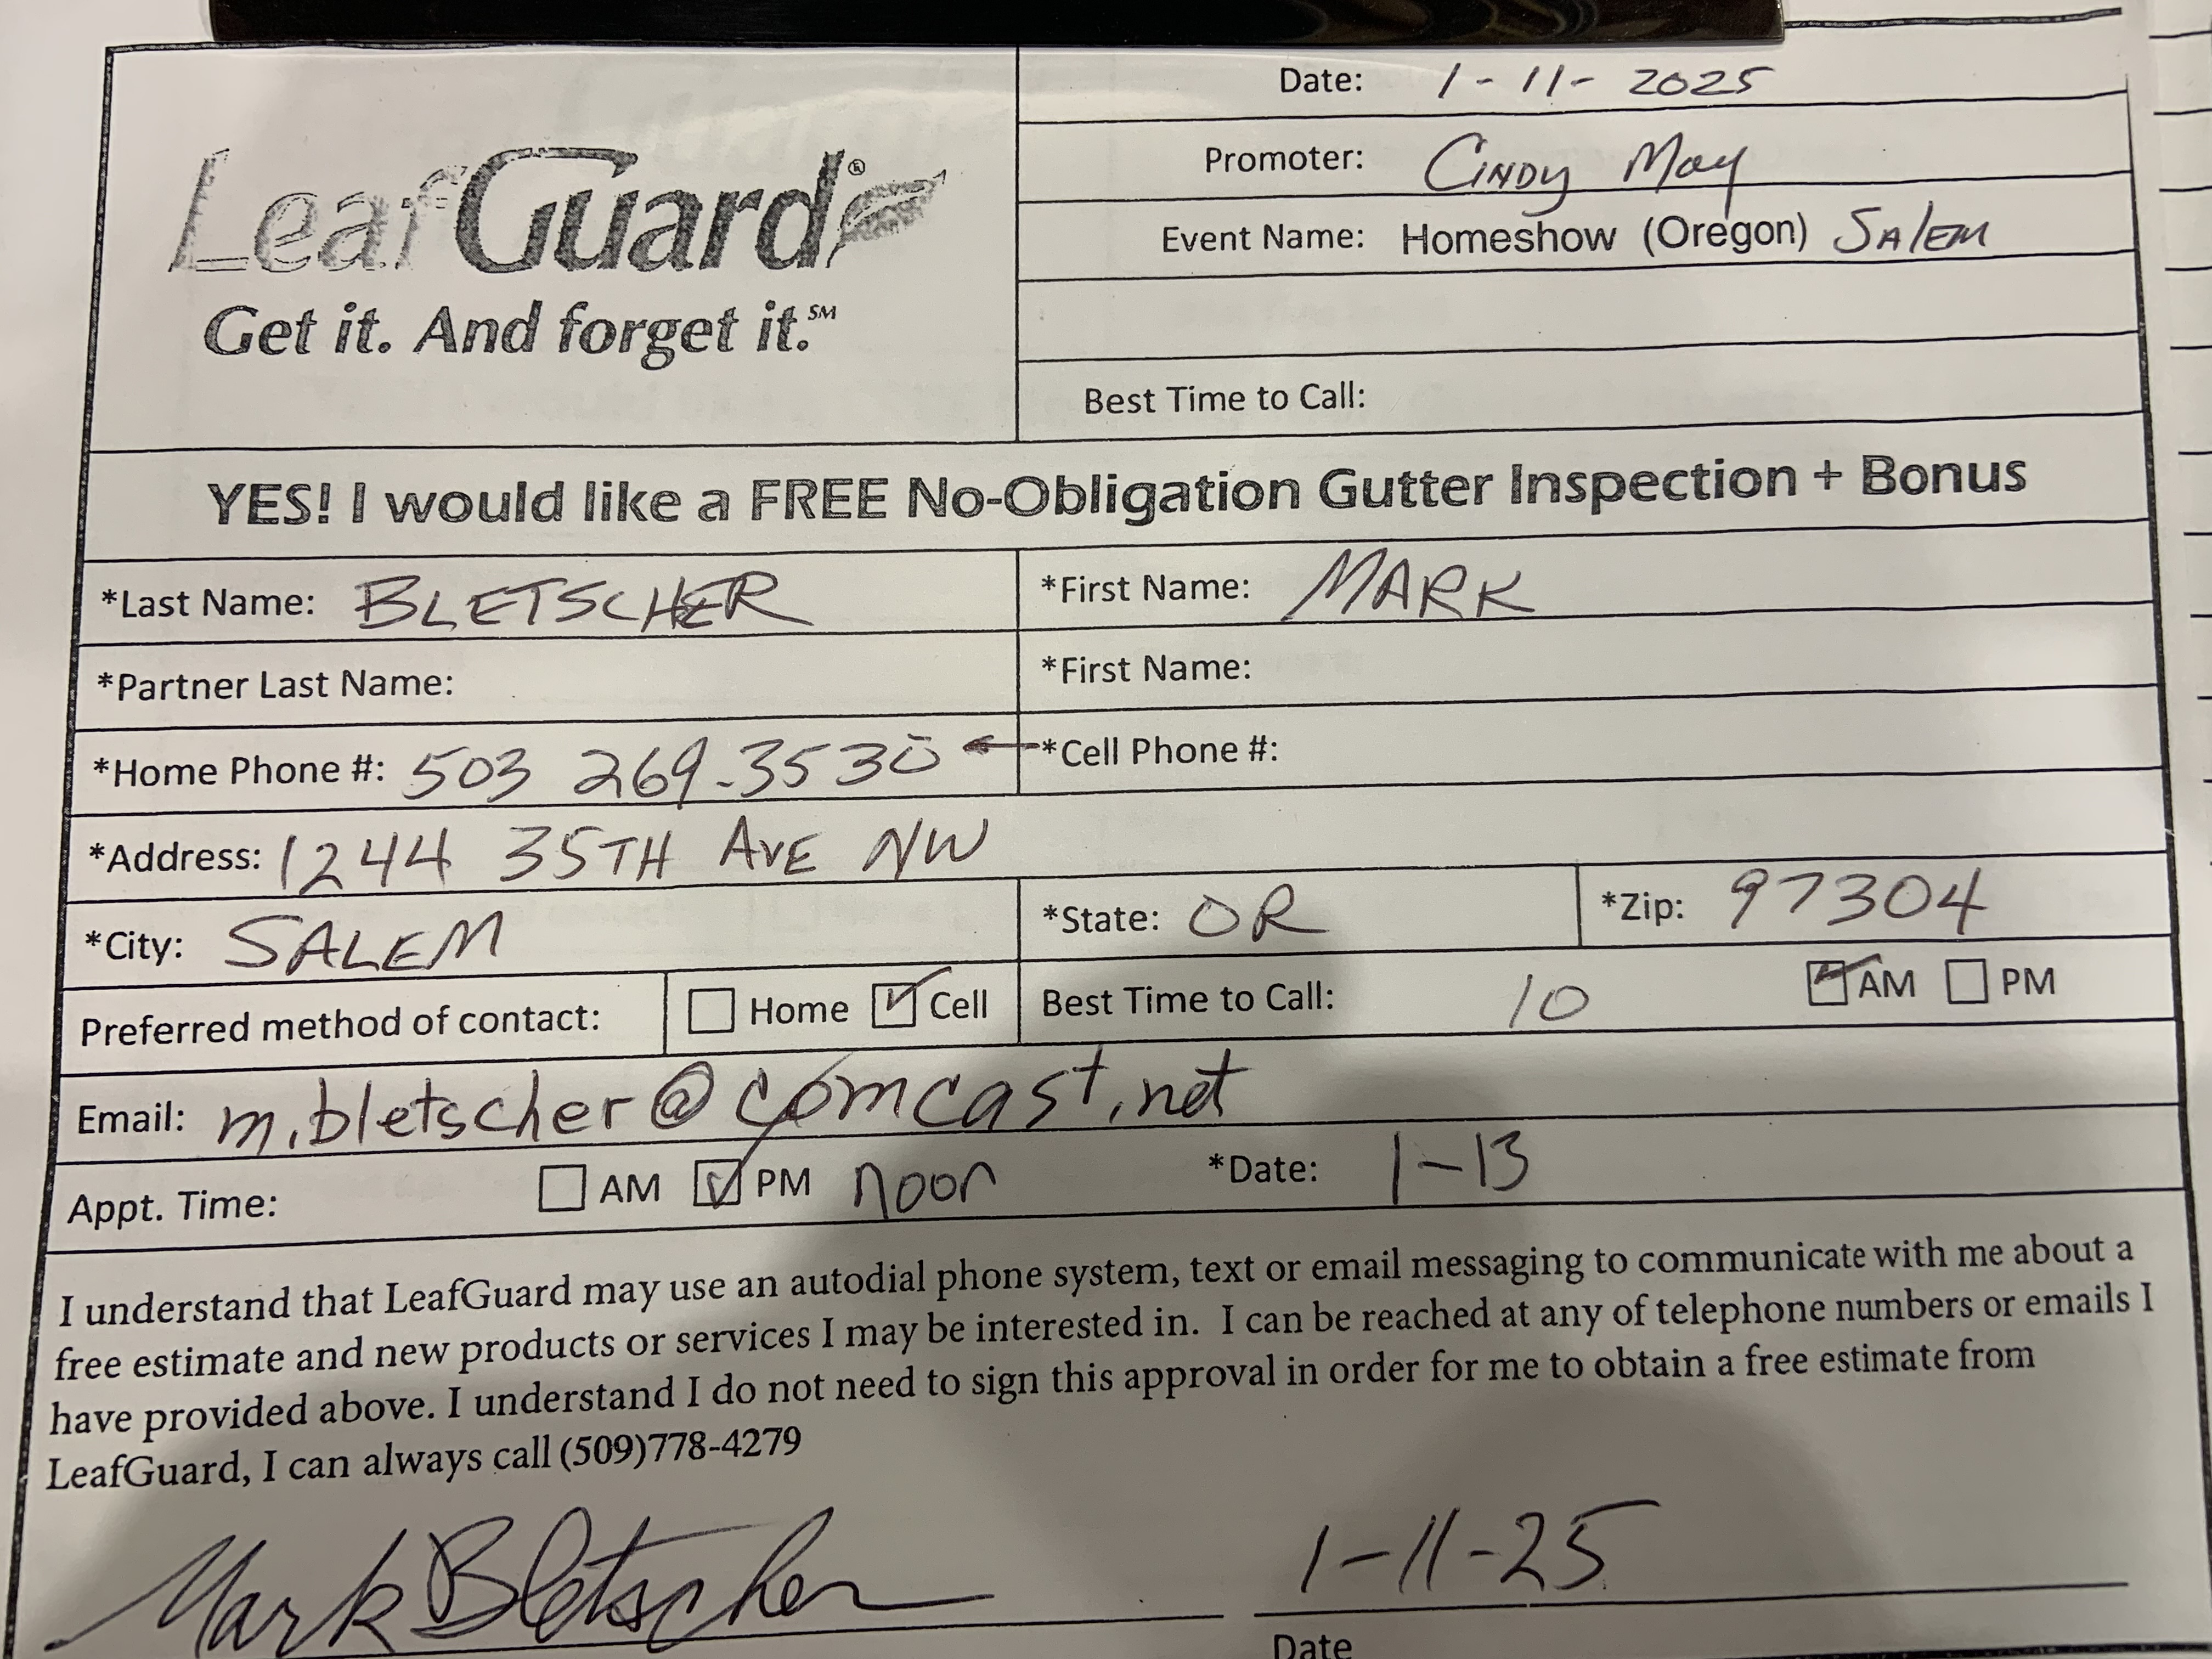 LeafGuard®
Get it. And forget it.℠
Date: 1-11-2025
Promoter: CINDY May
Event Name: Homeshow (Oregon) SAlEM
Best Time to Call:
YES! I would like a FREE No-Obligation Gutter Inspection + Bonus
*Last Name: BLETSCHER *First Name: MARK
*Partner Last Name: *First Name:
*Home Phone #: 503 269-3530 ← *Cell Phone #:
*Address: 1244 35TH AVE NW
*City: SALEM *State: OR *Zip: 97304
Preferred method of contact: ☐ Home ☑ Cell Best Time to Call: 10 ☑ AM ☐ PM
Email: m.bletscher@comcast.net
Appt. Time: ☐ AM ☑ PM noon *Date: 1-13
I understand that LeafGuard may use an autodial phone system, text or email messaging to communicate with me about a
free estimate and new products or services I may be interested in. I can be reached at any of telephone numbers or emails I
have provided above. I understand I do not need to sign this approval in order for me to obtain a free estimate from
LeafGuard, I can always call (509)778-4279
Mark Bletscher 1-11-25
Date